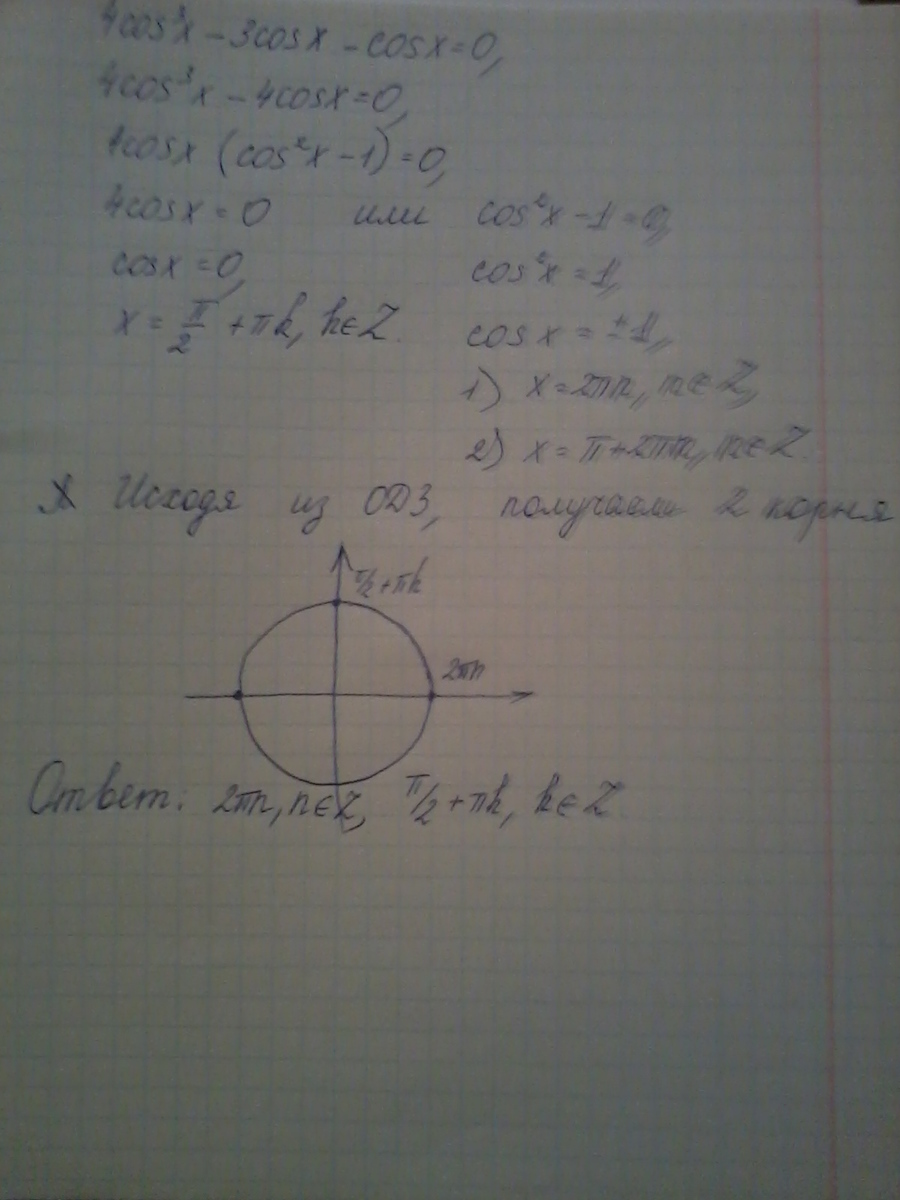 4cos³x - 3cosx - cosx = 0,
4cos³x - 4cosx = 0,
4cosx (cos²x - 1) = 0,
4cosx = 0 или cos²x - 1 = 0,
cosx = 0, cos²x = 1,
x = π/2 + πk, k∈Z. cos x = ±1,
1) x = 2πn, n∈Z,
2) x = π + 2πn, n∈Z.
Исходя из ОДЗ, получаем 2 корня
π/2 + πk
2πn
Ответ: 2πn, n∈Z, π/2 + πk, k∈Z.